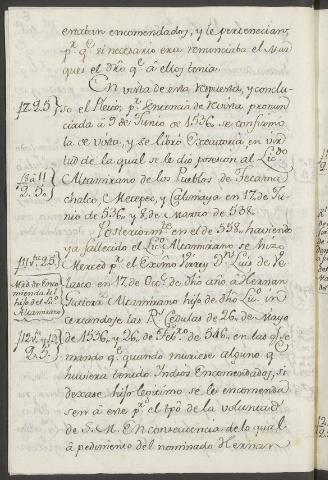 estaban encomendados, y le pertenecian,
p.r q.e si necesario era renunciaba el Mar
ques el dro q.e á ellos tenia.
En vista de esta respuesta, y conclu
17. 2 S.
so el Pleito, p.r Sentencia de Revista, pronun
ciada á 9 de Junio de 1536, se confirmó
la de vista, y se libró Executoria en vir
tud de la qual se le dio posesion al Lic.do
2. S.
Altamirano de los Pueblos de Tecama
chalco, Metepec, y Calimaya en 17. de Ju
nio de 536, y 8, de Marzo de 538.
Posteriorm.te en el de 558, haviendo
ya fallecido el Lic.do Altamirano se hizo
Merced p.r el Exc̃mo Virrey D.n Luis de Ve
Mrd. de Enco
mienda al
hijo del Lic.do
Altamirano
lasco en 17. de Oct.re de dho año á Hernan
Gutierr.z Altamirano hijo de dho Lic.do in
cercandose las R.s Cedulas de 26, de Mayo
de 1536, y 26, de Feb.ro de 546, en las q.e se
2. S.
mandó q.e quando muriese alguno q.e
huviera tenido Indios Encomendados, si
dexase hijo legitimo se le encomenda
sen á ene p.r el tpõ de la voluntad
de S. M. En conseqüencia de lo qual
á pedimento del nominado Hernan